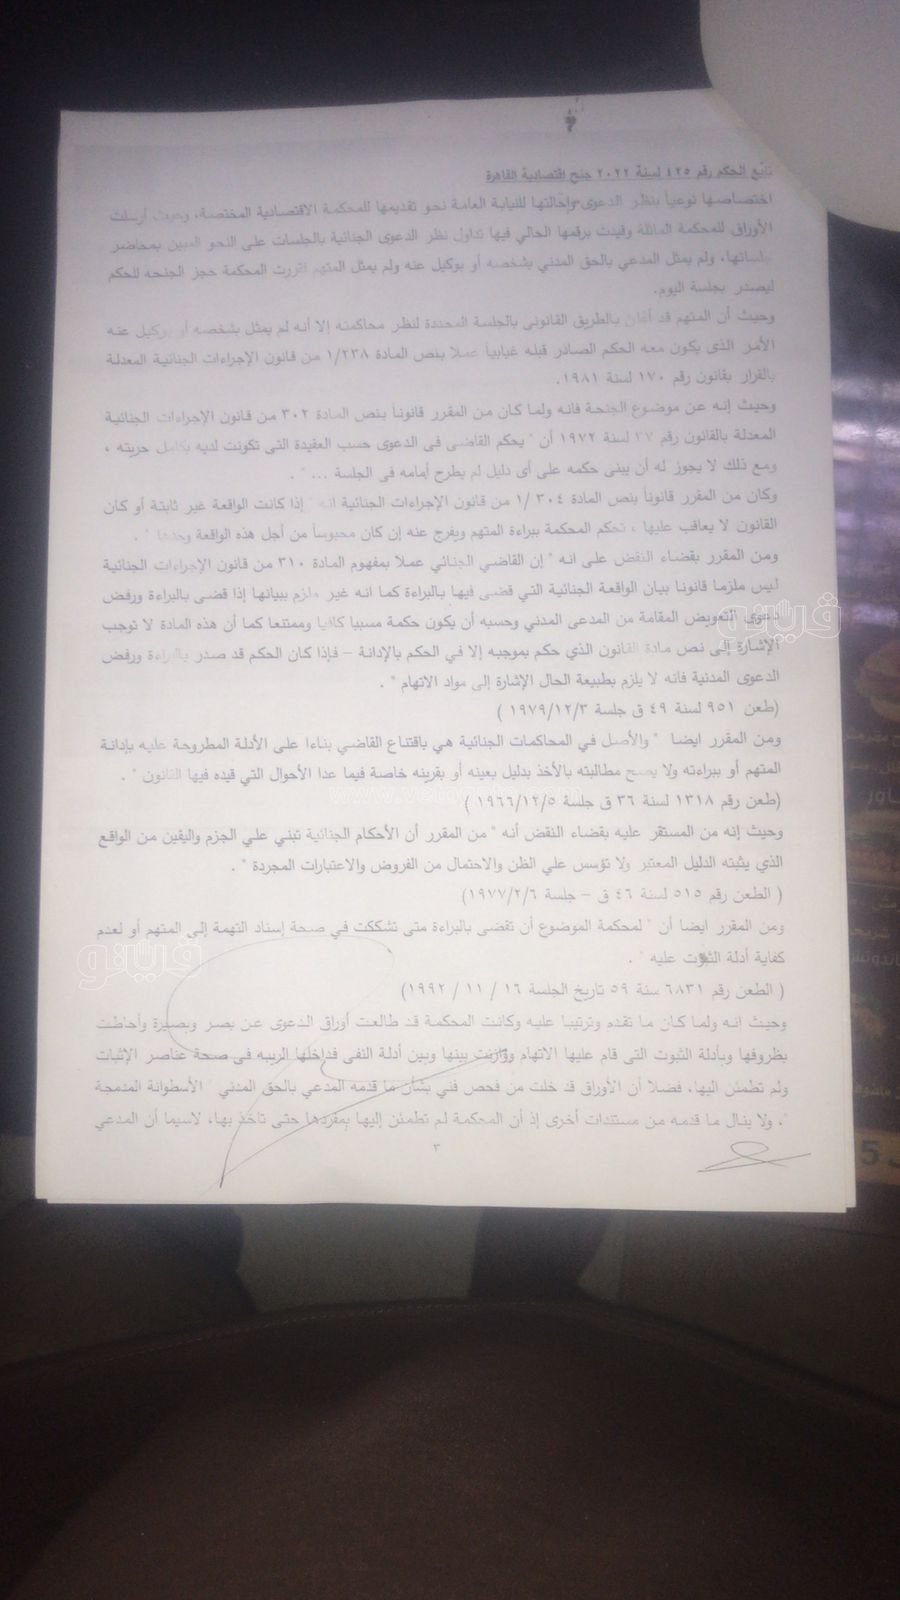 تابع الحكم رقم ٤٢٥ لسنة ٢٠٢٢ جنح اقتصادية القاهرة
اختصاصها نوعياً بنظر الدعوى وإحالتها للنيابة العامة نحو تقديمها للمحكمة الاقتصادية المختصة، وحيث أرسلت
الأوراق للمحكمة الماثلة وقيدت برقمها الحالي فيها تداول نظر الدعوى الجنائية بالجلسات على النحو المبين بمحاضر
جلساتها، ولم يمثل المدعي بالحق المدني بشخصه أو بوكيل عنه ولم يمثل المتهم فقررت المحكمة حجز الجنحة للحكم
ليصدر بجلسة اليوم.
وحيث أن المتهم قد أعلن بالطريق القانونى بالجلسة المحددة لنظر محاكمته إلا أنه لم يمثل بشخصه أو بوكيل عنه
الأمر الذى يكون معه الحكم الصادر قبله غيابياً عملا بنص المادة ١/٢٣٨ من قانون الإجراءات الجنائية المعدلة
بالقرار بقانون رقم ١٧٠ لسنة ١٩٨١.
وحيث إنه عن موضوع الجنحة فانه ولما كان من المقرر قانوناً بنص المادة ٣٠٢ من قانون الإجراءات الجنائية
المعدلة بالقانون رقم ٣٧ لسنة ١٩٧٢ أن " يحكم القاضى فى الدعوى حسب العقيدة التى تكونت لديه بكامل حريته ،
ومع ذلك لا يجوز له أن يبنى حكمه على أى دليل لم يطرح أمامه فى الجلسة ... " .
وكان من المقرر قانوناً بنص المادة ٣٠٤ /١ من قانون الإجراءات الجنائية انه " إذا كانت الواقعة غير ثابتة أو كان
القانون لا يعاقب عليها ، تحكم المحكمة ببراءة المتهم ويفرج عنه إن كان محبوساً من أجل هذه الواقعة وحدها " .
ومن المقرر بقضاء النقض على انه " إن القاضي الجنائي عملا بمفهوم المادة ٣١٠ من قانون الإجراءات الجنائية
ليس ملزما قانونا ببيان الواقعة الجنائية التي قضى فيها بالبراءة كما انه غير ملزم ببيانها إذا قضى بالبراءة ورفض
دعوى التعويض المقامة من المدعى المدني وحسبه أن يكون حكمة مسببا كافيا وممتنعا كما أن هذه المادة لا توجب
الإشارة إلى نص مادة القانون الذي حكم بموجبه إلا في الحكم بالإدانة – فإذا كان الحكم قد صدر بالبراءة ورفض
الدعوى المدنية فانه لا يلزم بطبيعة الحال الإشارة إلى مواد الاتهام " .
(طعن ٩٥١ لسنة ٤٩ ق جلسة ١٩٧٩/١٢/٣ )
ومن المقرر ايضا " والأصل في المحاكمات الجنائية هي باقتناع القاضي بناءا على الأدلة المطروحة عليه بإدانة
المتهم أو ببراءته ولا يصح مطالبته بالأخذ بدليل بعينه أو بقرينه خاصة فيما عدا الأحوال التي قيده فيها القانون " .
(طعن رقم ١٣١٨ لسنة ٣٦ ق جلسة ١٩٦٦/١٢/٥ )
وحيث إنه من المستقر عليه بقضاء النقض أنه " من المقرر أن الأحكام الجنائية تبني علي الجزم واليقين من الواقع
الذي يثبته الدليل المعتبر ولا تؤسس علي الظن والاحتمال من الفروض والاعتبارات المجردة " .
( الطعن رقم ٥١٥ لسنة ٤٦ ق – جلسة ١٩٧٧/٢/٦)
ومن المقرر ايضا أن " لمحكمة الموضوع أن تقضى بالبراءة متى تشككت في صحة إسناد التهمة إلى المتهم أو لعدم
كفاية أدلة الثبوت عليه " .
( الطعن رقم ٦٨٣١ سنة ٥٩ تاريخ الجلسة ١٦ / ١١ / ١٩٩٢)
وحيث انه ولما كان ما تقدم وترتيبا عليه وكانت المحكمة قد طالعت أوراق الدعوى عن بصر وبصيرة وأحاطت
بظروفها وبأدلة الثبوت التى قام عليها الاتهام ووازنت بينها وبين أدلة النفى فداخلها الريبه فى صحة عناصر الإثبات
ولم تطمئن اليها، فضلا أن الأوراق قد خلت من فحص فني بشأن ما قدمه المدعي بالحق المدني " الأسطوانة المدمجة
"، ولا ينال ما قدمه من مستندات أخرى إذ أن المحكمة لم تطمئن إليها بمفردها حتى تأخذ بها، لاسيما أن المدعي
٣
ڤيتو
ڤيتو